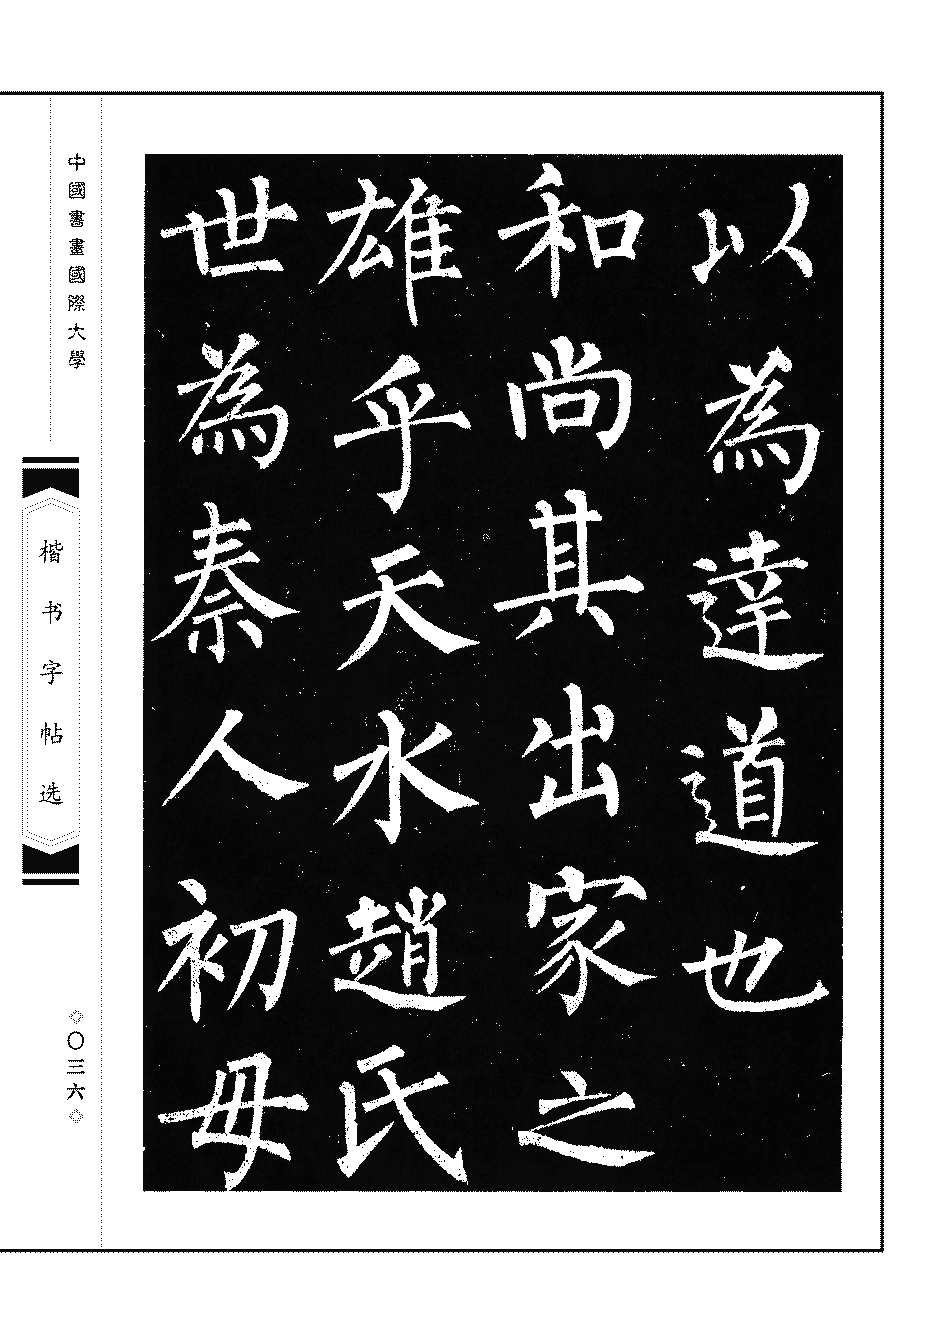 以為達道也
和尚其出家之
雄乎天水趙氏
世為秦人初母
中國書畫國際大學
楷书字帖选
◇〇三六◇